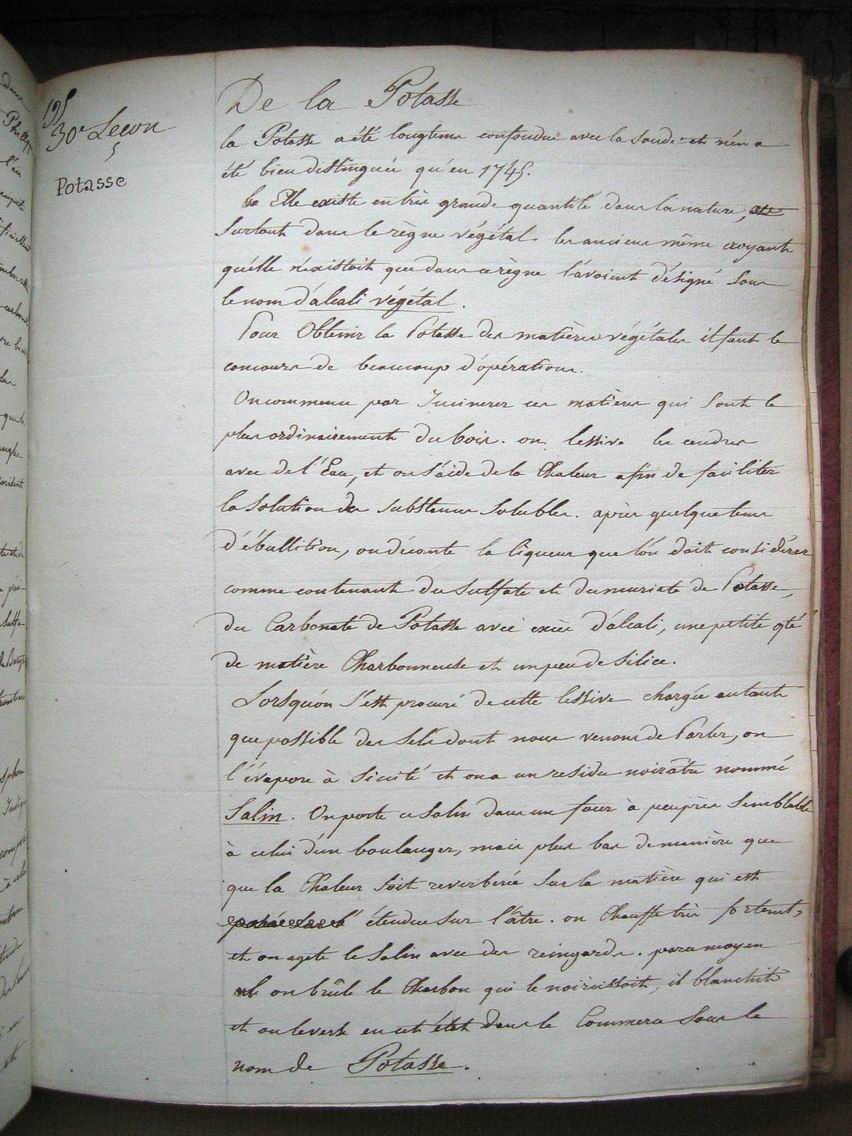 195
30e Leçon
Potasse
De la Potasse
la Potasse a été longtems confondue avec la soude et n'en a
été bien distinguée qu'en 1745.
Elle existe en très grande quantité dans la nature,
surtout dans le règne végétal. les anciens même croyant
qu'elle n'existoit que dans ce règne l'avoient désigné sous
le nom d'alcali végétal.
Pour Obtenir la Potasse des matières végétales il faut le
concours de beaucoup d'opérations.
On commence par Incinerer ces matières qui sont le
plus ordinairement du bois. on lessive les cendres
avec de l'Eau, et on s'aide de la Chaleur afin de faciliter
la solution des substances solubles. après quelque tems
d'ébullition, on décante la liqueur que l'on doit considérer
comme contenant du sulfate et du muriate de Potasse,
du Carbonate de Potasse avec excès d'alcali, une petite qté
de matière Charbonneuse et un peu de silice.
Lorsqu'on s'est procuré de cette lessive chargée autant
que possible des sels dont nous venons de Parler, on
l'évapore à siccité et on a un residu noirâtre nommé
Salin. On porte ce salin dans un four à peuprès semblable
à celui d'un boulanger, mais plus bas de manière que
que la Chaleur soit reverberée sur la matière qui est
étendue sur l'âtre. on Chauffe très fortemt,
et on agite le Salin avec des reingards. par ce moyen
on brûle le Charbon qui le noircissoit, il blanchit
et on le verse en cet état dans le Commerce sous le
nom de Potasse.